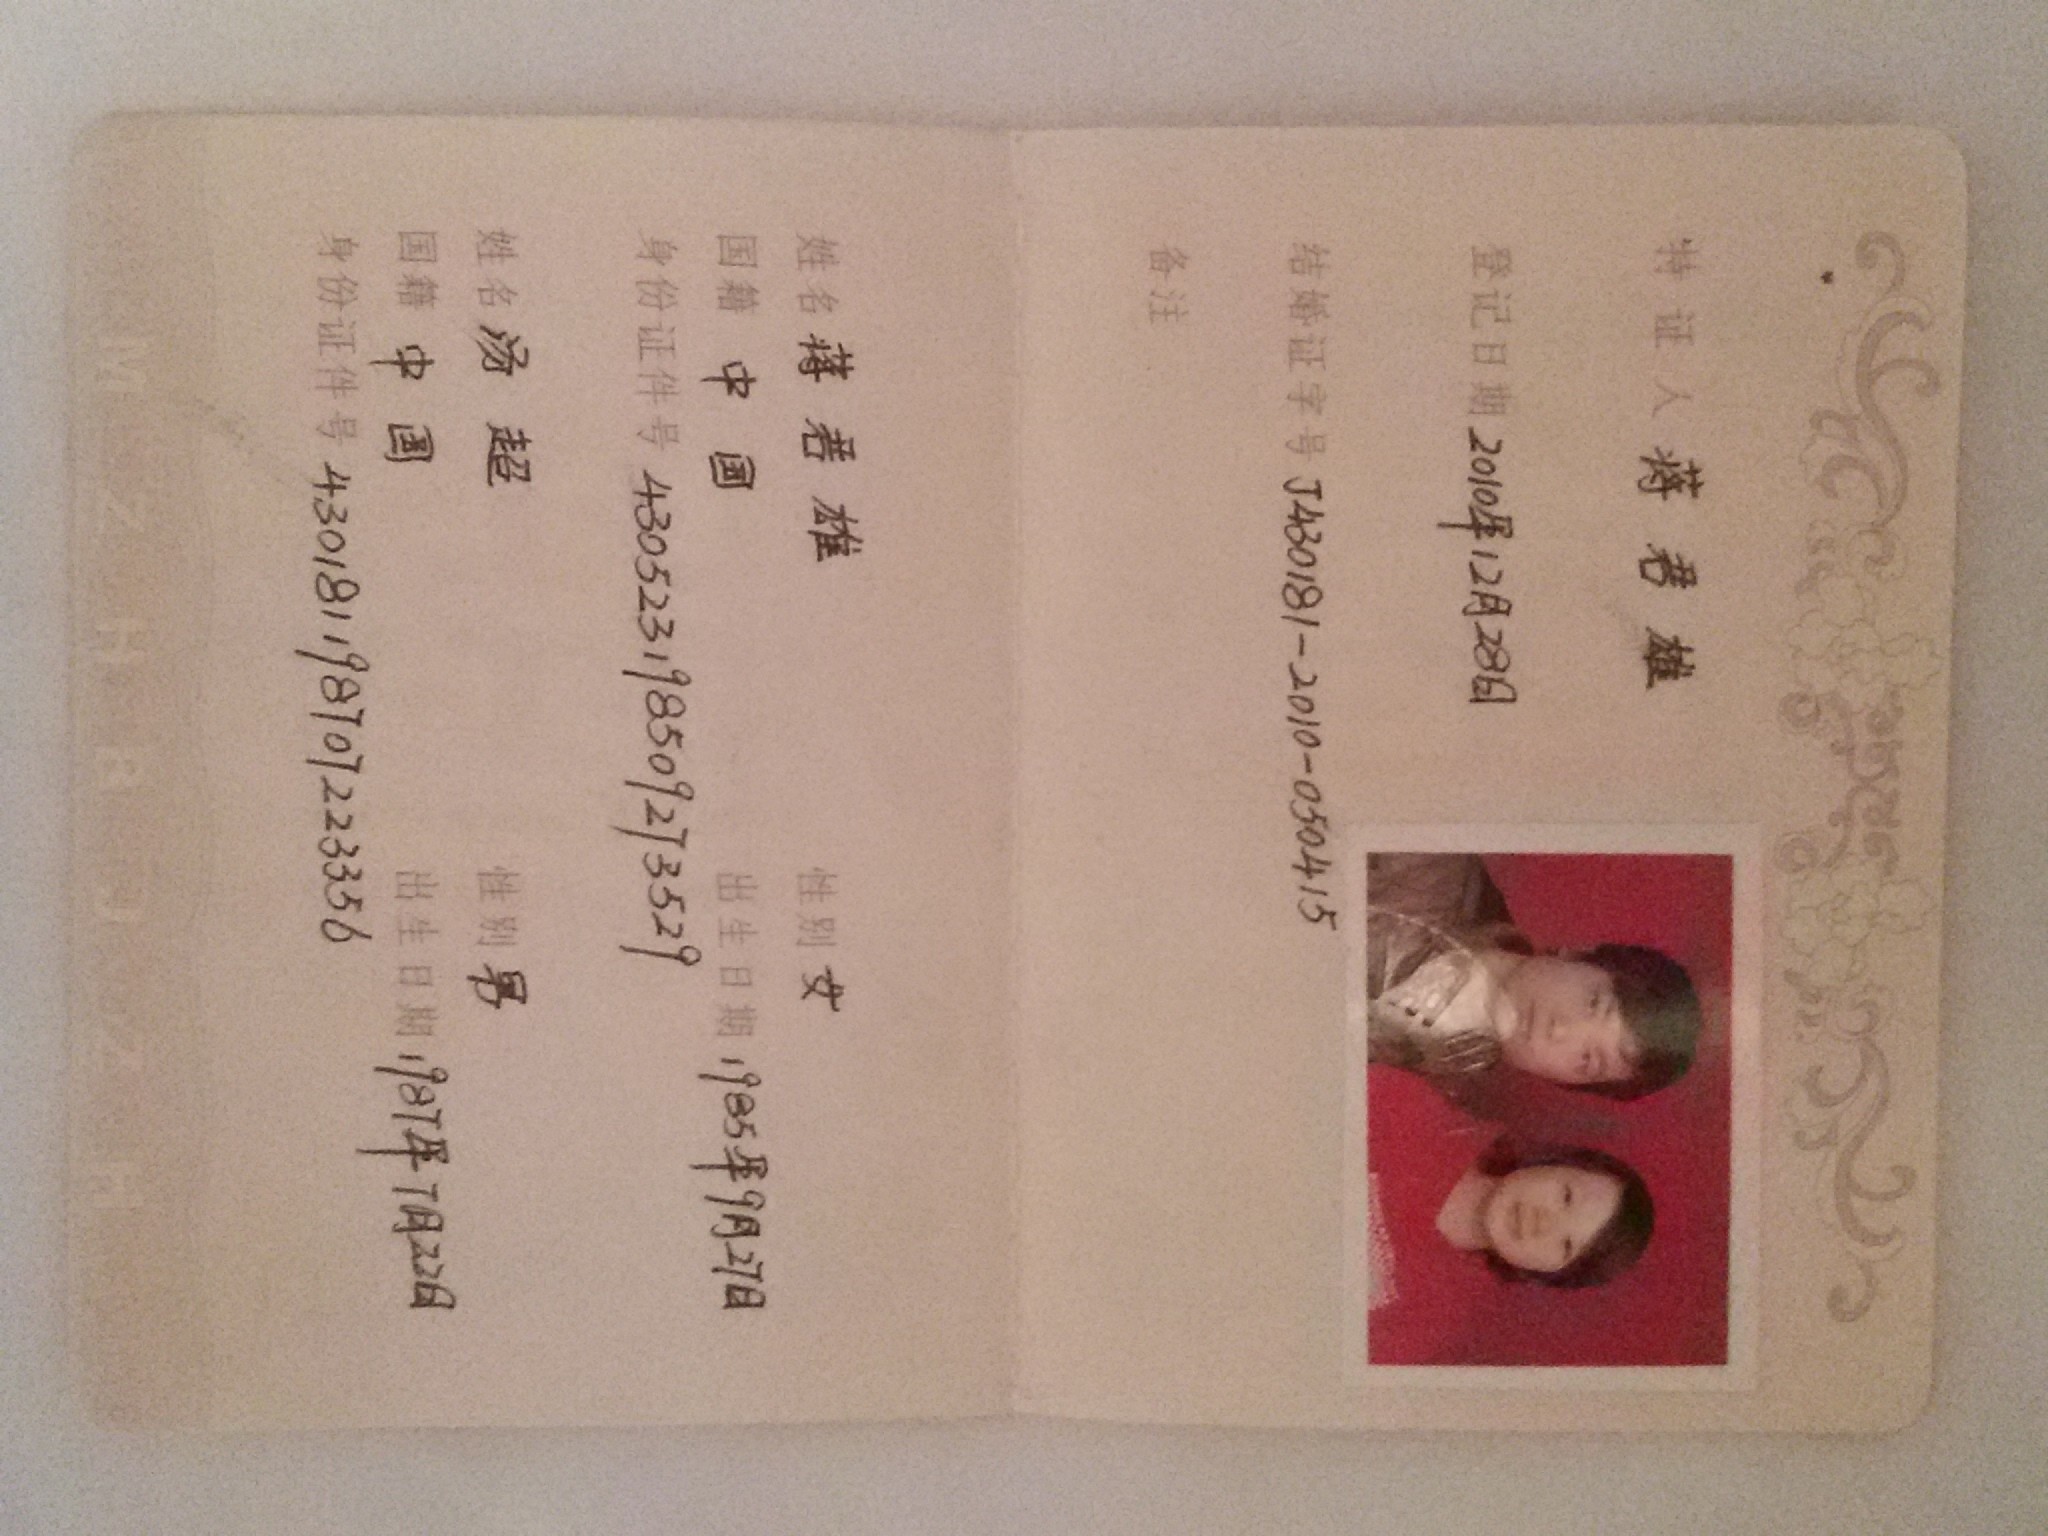 持证人 蒋君雄
登记日期 2010年12月28日
结婚证字号 J430181-2010-050415
备注
姓名 蒋君雄 性别 女
国籍 中国 出生日期 1985年9月27日
身份证件号 430523198509273529
姓名 汤超 性别 男
国籍 中国 出生日期 1987年7月22日
身份证件号 430181198707223356